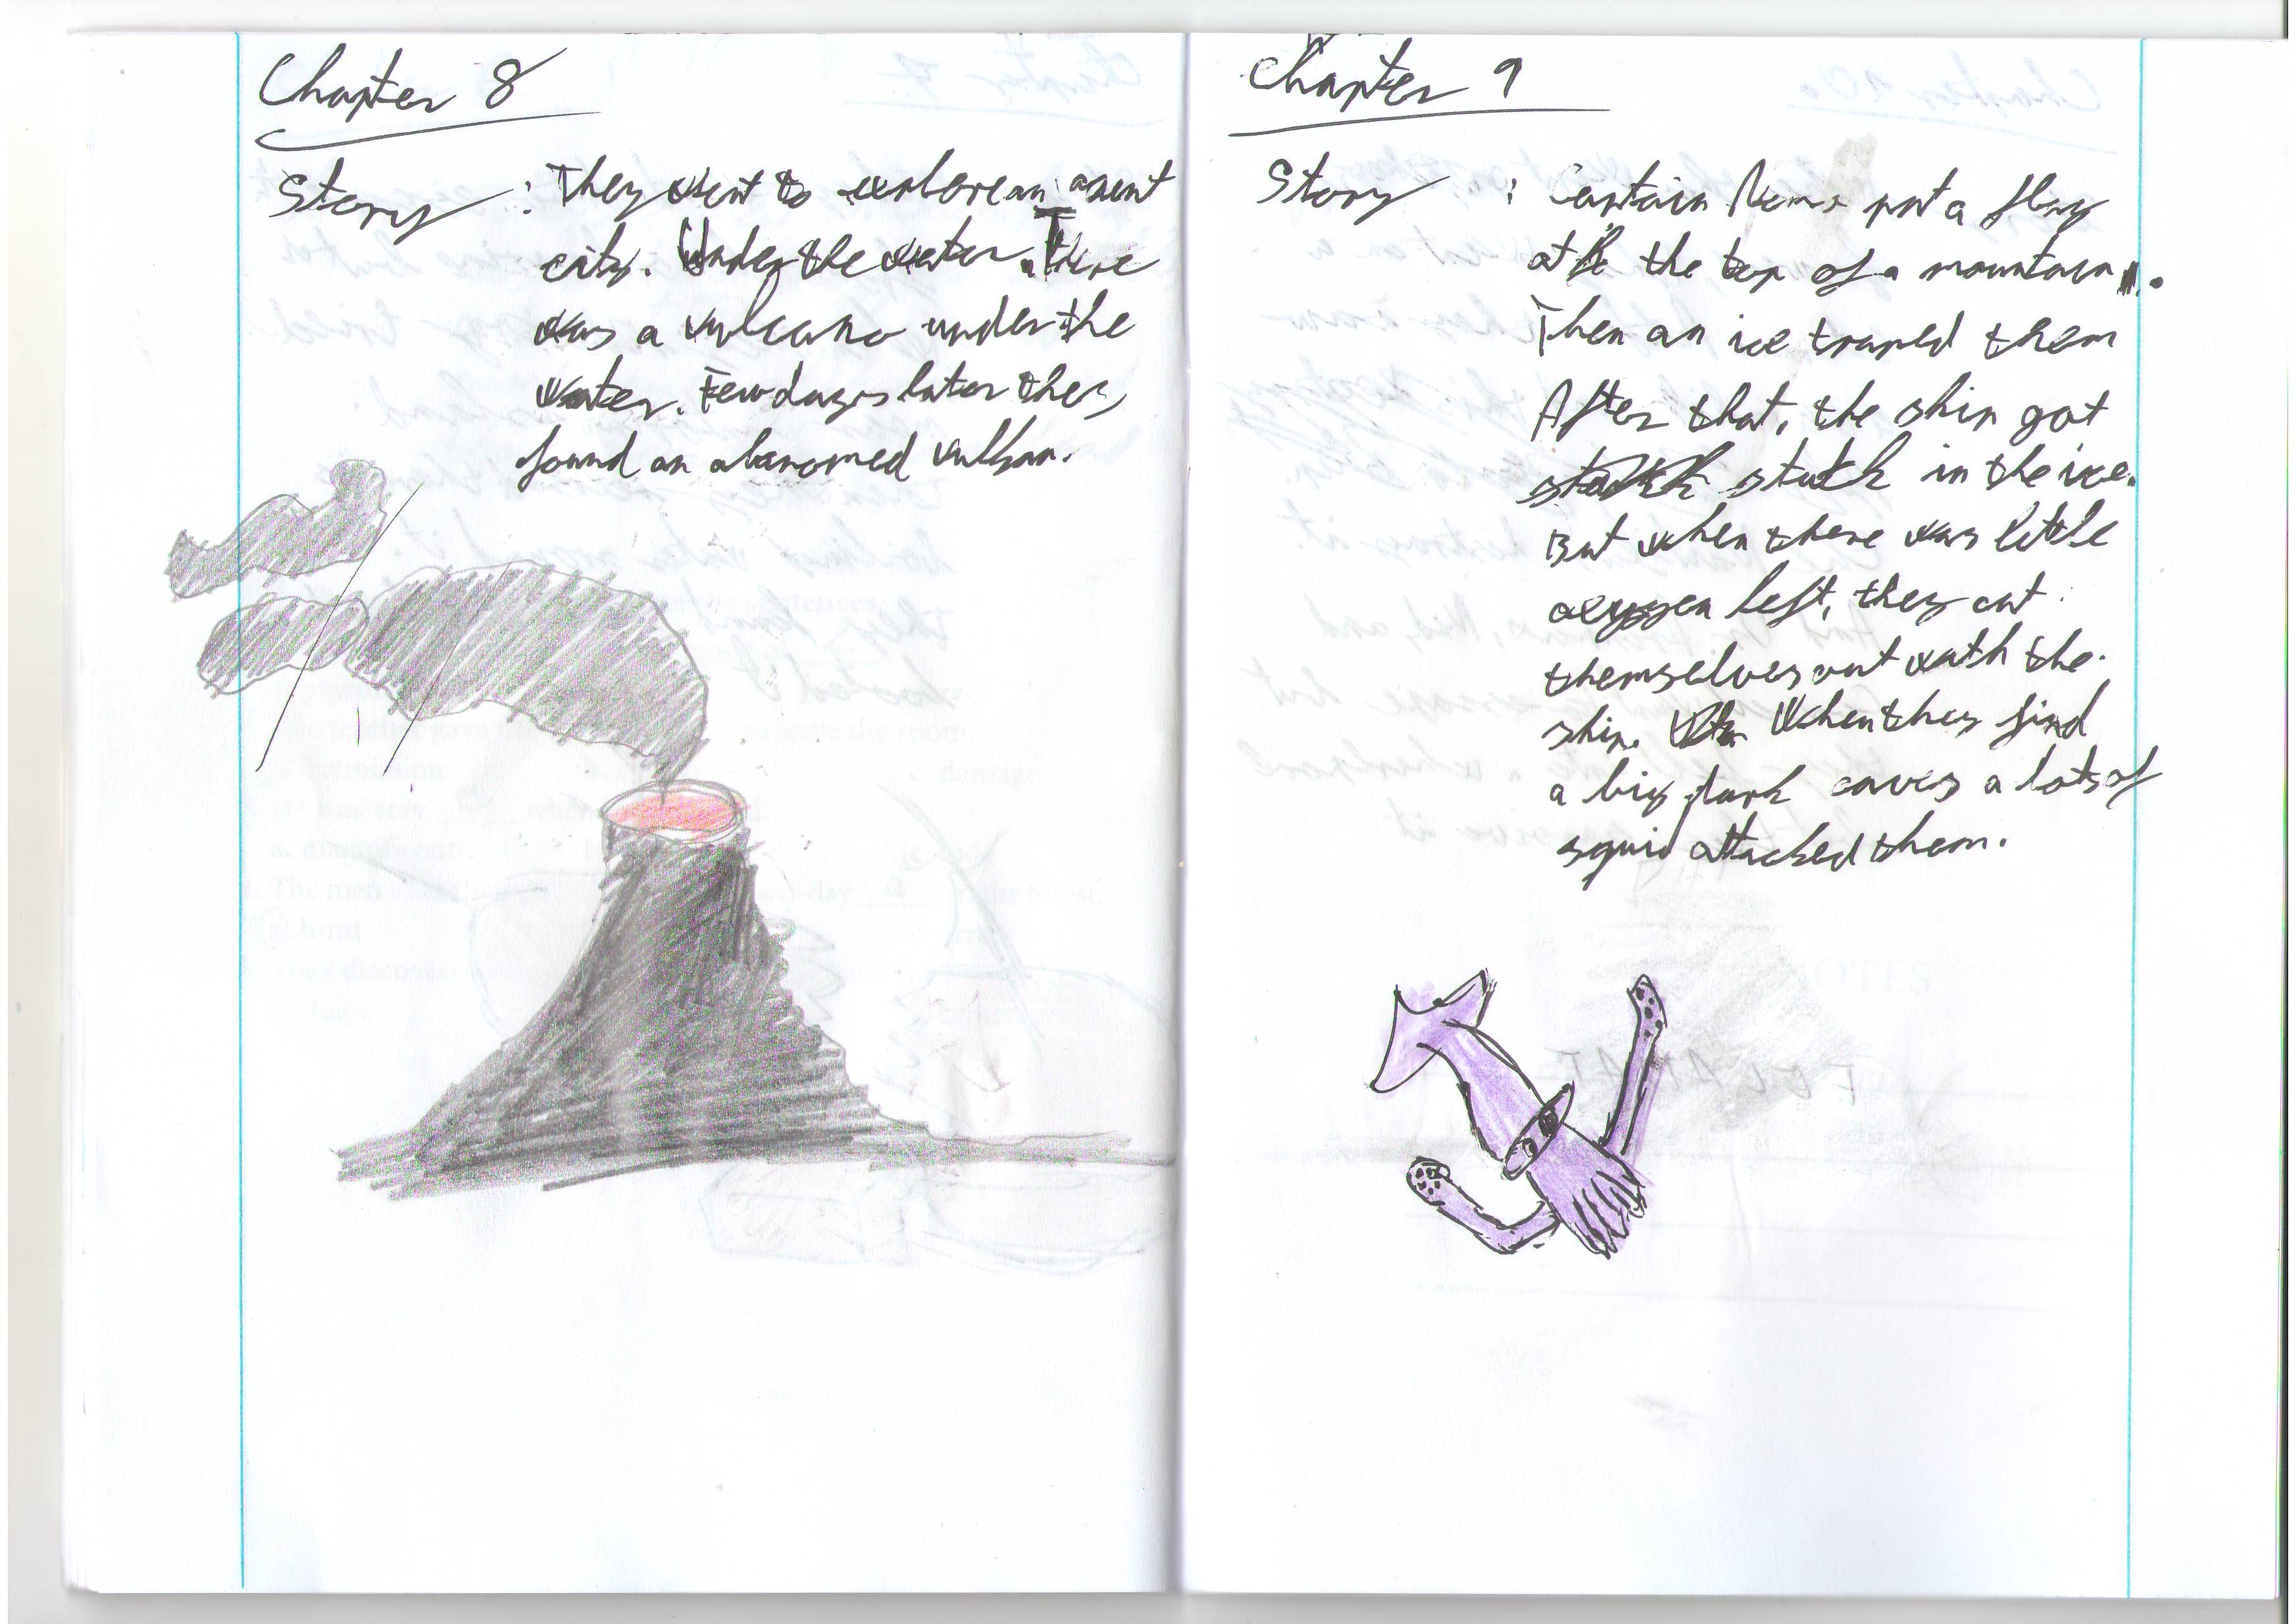 Chapter 8
Story : They went to explore an aient
city. Under the water. There
was a vulcano under the
water. Few days later they
found an
Chapter 9
Story : Captain Nemo put a flag
at the top of a mountain.
Then an ice traped them
After that, the ship got
stuck in the ice.
But when there was little
oxygen left, they cut
themselves out with the
ship. When they find
a big dark caves a lots of
squid attacked them.